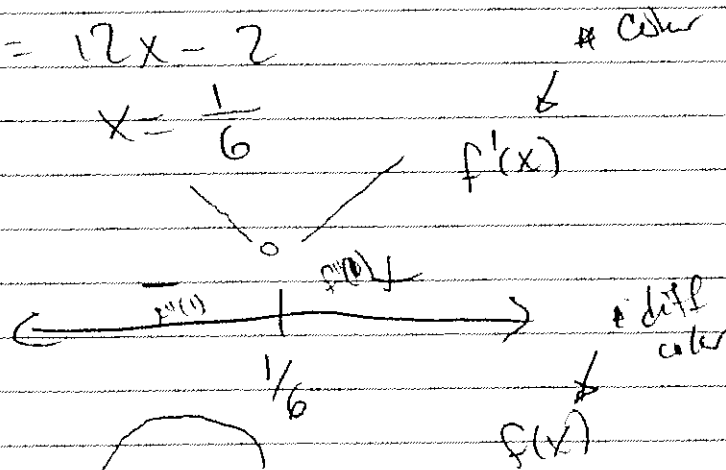 = 12x - 2
* color
x = 1/6
f'(x)
- +
1/6
* diff
color
f(x)